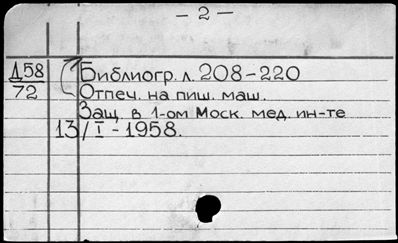 — 2 —
Д58 Библиогр. л. 208-220
72 Отпеч. на пиш. маш.
Защ. в 1-ом Моск. мед. ин-те
13/I - 1958.